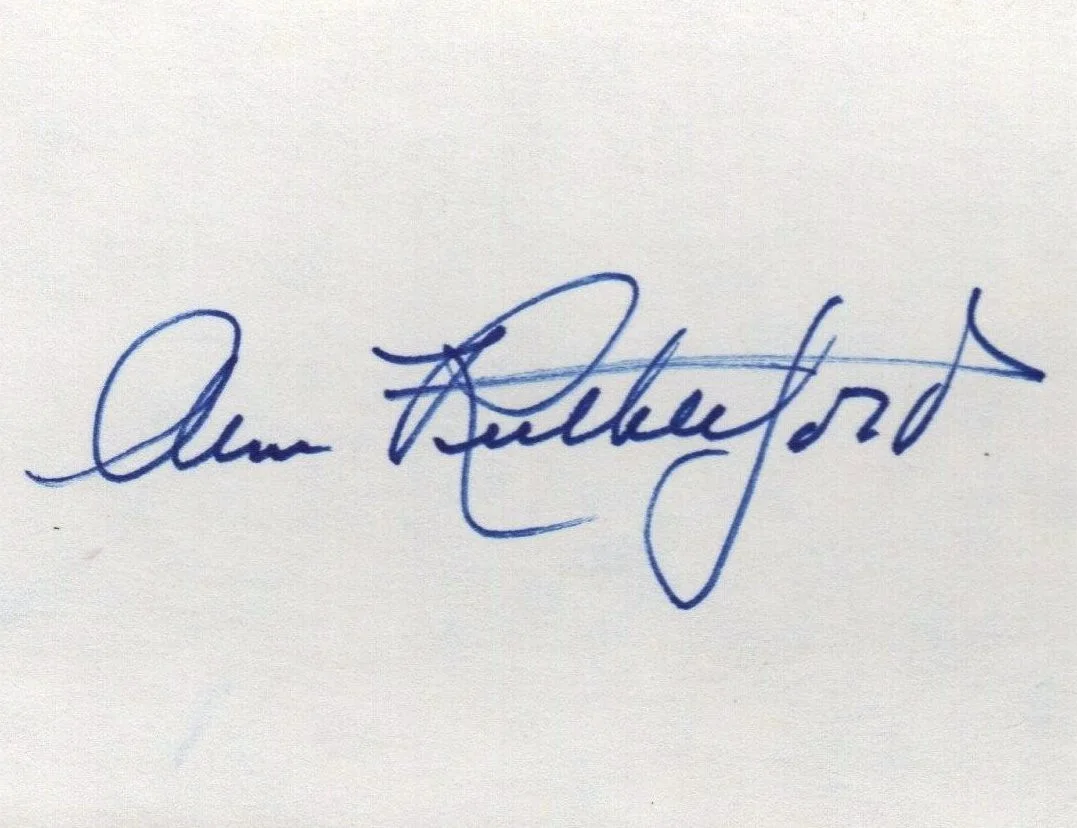 Ann Rutherford